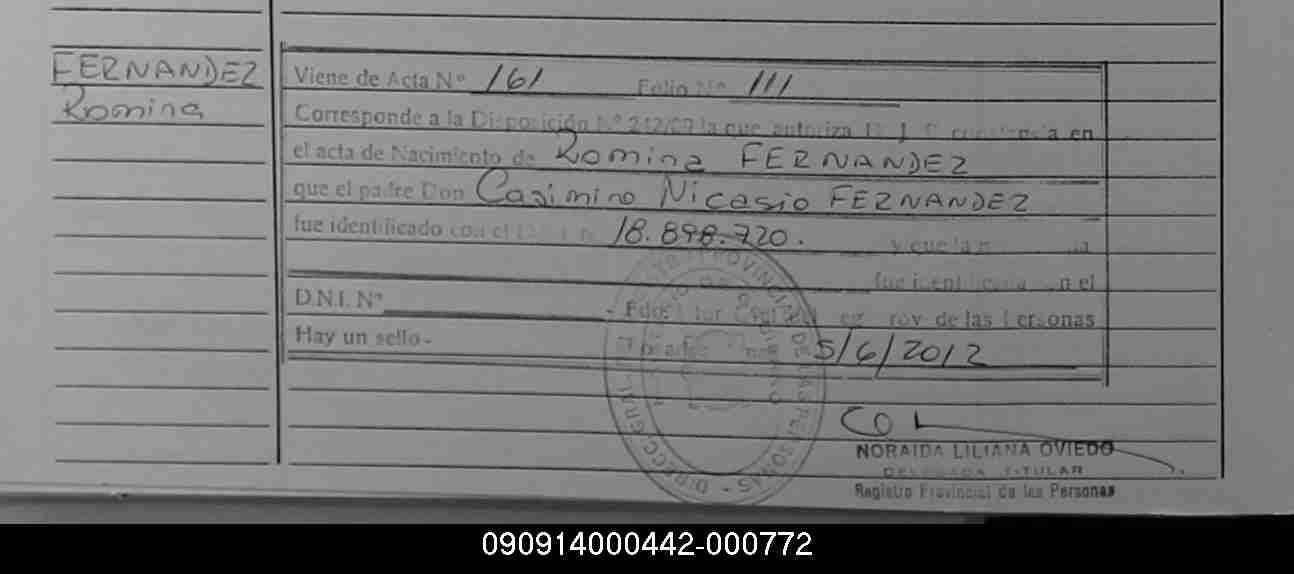 FERNANDEZ
Romina
Viene de Acta Nº 161 Folio Nº 111
Corresponde a la Disposición Nº 212/09 la que autoriza en
el acta de Nacimiento de Romina FERNANDEZ
que el padre Don Casimiro Nicasio FERNANDEZ
fue identificado con el 18.898.720. y que la
fue identificada en el
D.N.I. Nº de las Personas
Hay un sello.- 5/6/2012
NORAIDA LILIANA OVIEDO
DELEGADA TITULAR
Registro Provincial de las Personas
090914000442-000772